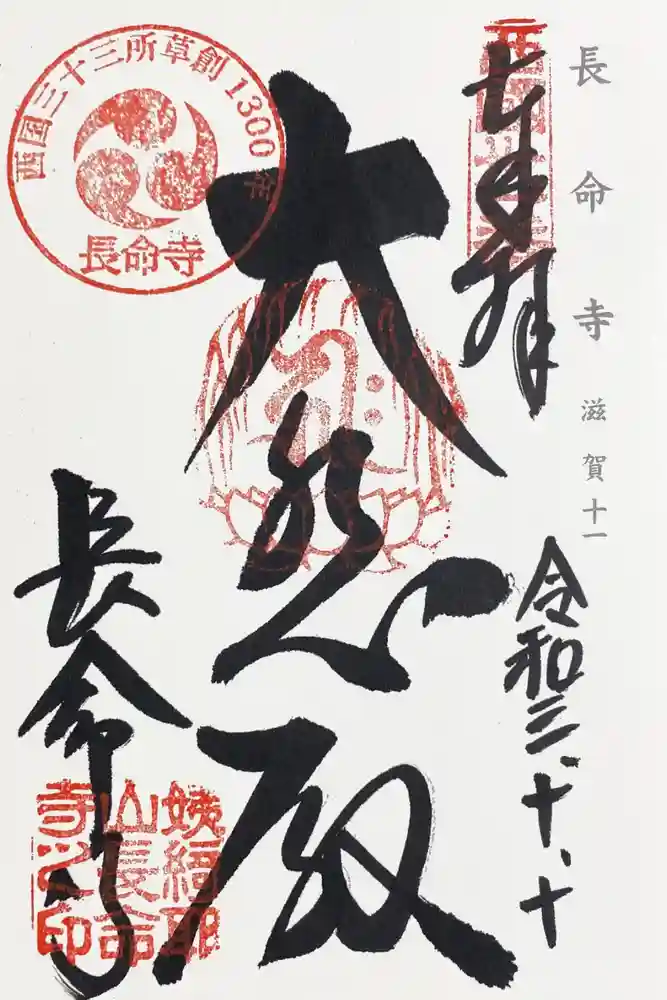 長命寺 滋賀十一
奉拝
西国三十三所
令和三、十、十
大悲殿
西国三十三所草創1300年
長命寺
長命寺
姨綺耶
山長命
寺之印